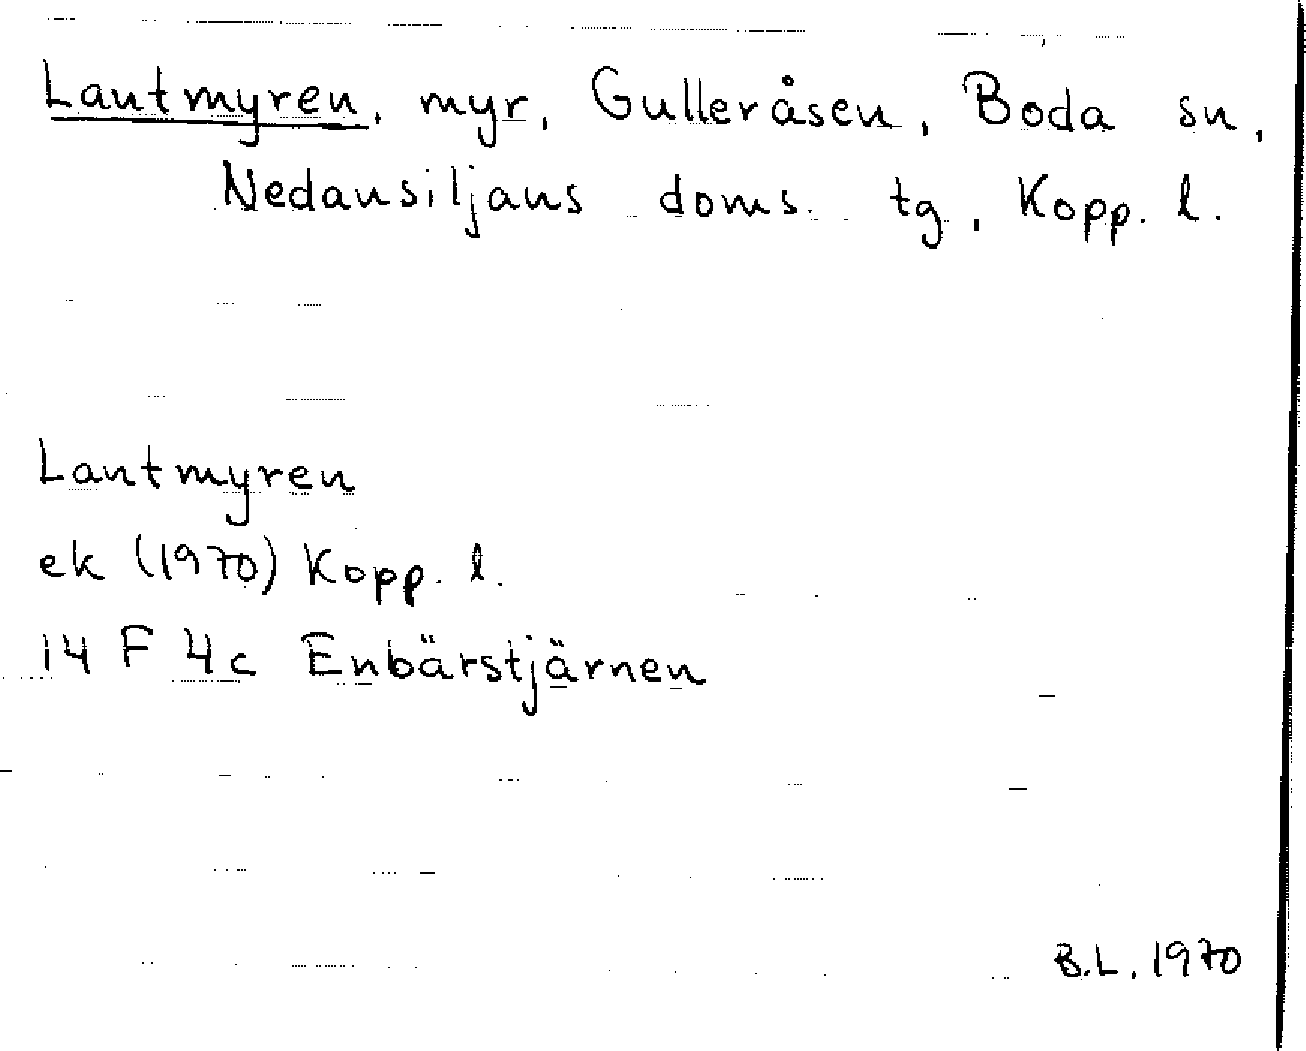 Lantmyren, myr, Gulleråsen, Boda sn,
Nedansiljans doms. tg, Kopp. l.
Lantmyren
ek (1970) Kopp. l.
14 F 4c Enbärstjärnen
B.L. 1970